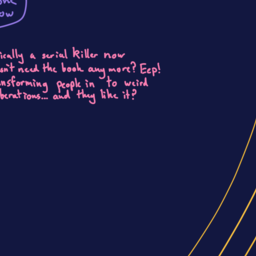 ow
ically a serial killer now
n't need the book any more? Eep!
nsforming people in to weird
berations... and they like it?